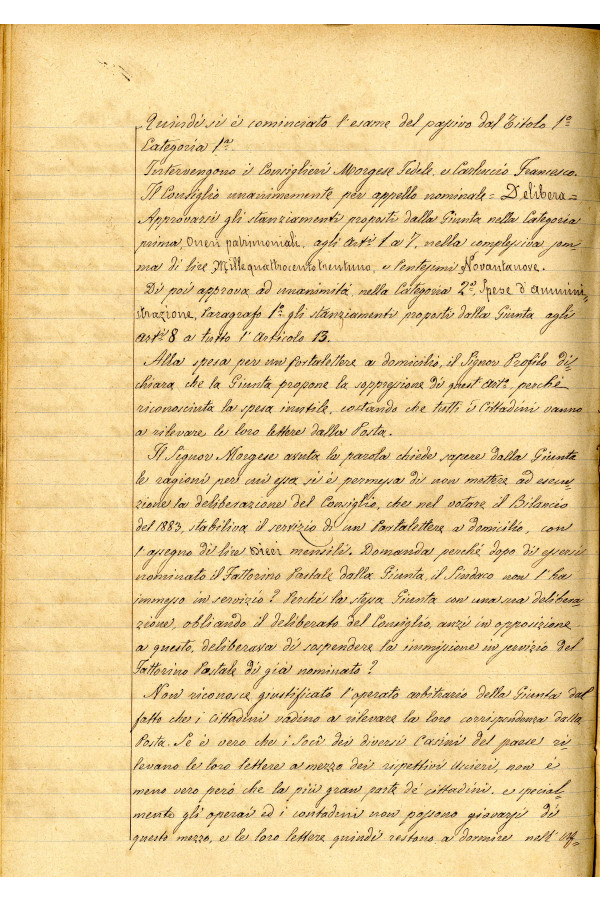 Quindi si è cominciato l'esame del passivo dal Titolo 1º
Categoria 1ª.
Intervengono i Consiglieri Morgese Fedele, e Carluccio Francesco.
Il Consiglio unanimemente per appello nominale = Delibera =
Approvarsi gli stanziamenti proposti dalla Giunta nella Categoria
prima, Oneri patrimoniali, agli artⁱ 1 a 7, nella complessiva som=
ma di lire Millequattrocentotrentuno, e Centesimi Novantanove.
Di poi approva ad unanimità, nella Categoria 2ª Spese d'ammini=
strazione, Paragrafo 1º gli stanziamenti proposti dalla Giunta agli
Artⁱ 8 a tutto l'Articolo 13.
Alla spesa per un portalettere a domicilio, il Signor Profilo di=
chiara che la Giunta propone la soppressione di quest'artº perchè
riconosciuta la spesa inutile, costando che tutti i Cittadini vanno
a rilevare le loro lettere dalla Posta.
Il Signor Morgese avuta la parola chiede sapere dalla Giunta
le ragioni per cui essa si è permessa di non mettere ad esecu=
zione la deliberazione del Consiglio, che nel votare il Bilancio
del 1883, stabiliva il servizio di un Portalettere a domicilio, con
l'assegno di lire Dieci mensili. Domanda perchè dopo di essersi
nominato il Fattorino Postale dalla Giunta, il Sindaco non l'ha
immesso in servizio? Perchè la stessa Giunta con una sua delibera=
zione, obliando il deliberato del Consiglio, anzi in opposizione
a questo, deliberava di sospendere la immissione in servizio del
Fattorino Postale di già nominato?
Non riconosce giustificato l'operato arbitrario della Giunta dal
fatto che i Cittadini vadino a rilevare la loro corrispondenza dalla
Posta. Se è vero che i Socî dei diversi Casini del paese ri
levano le loro lettere a mezzo dei rispettivi uscieri, non è
meno vero però che la più gran parte de' cittadini, e special=
mente gli operai ed i contadini non possono giovarsi di
questo mezzo, e le loro lettere quindi restono a dormire nell'Uf=